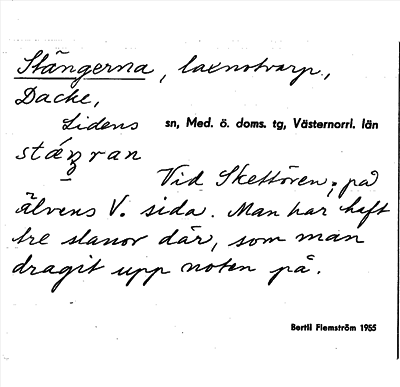 Stängerna, laxnotvarp.,
Dacke,
Lidens sn, Med. ö. doms. tg, Västernorrl. län
Vid Skettören, på
älvens V. sida. Man har haft
tre slanor där, som man
dragit upp noten på.
Bertil Flemström 1955